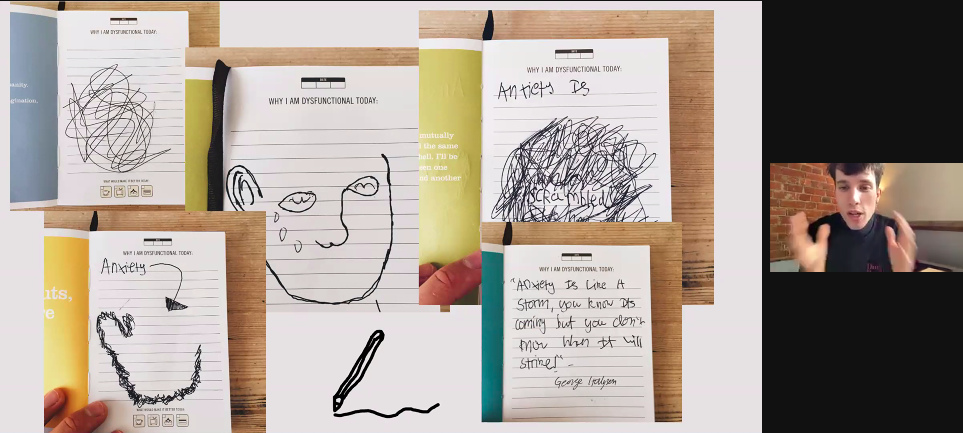 WHY I AM DYSFUNCTIONAL TODAY:
WHY I AM DYSFUNCTIONAL TODAY:
WHY I AM DYSFUNCTIONAL TODAY:
Anxiety Is
scrambled
mutually
the same
hell, I'll be
another
WHY I AM DYSFUNCTIONAL TODAY:
Anxiety
uts,
re
WHY I AM DYSFUNCTIONAL TODAY:
"Anxiety Is Like A
Storm, you know Its
coming but you don't
when It will
George